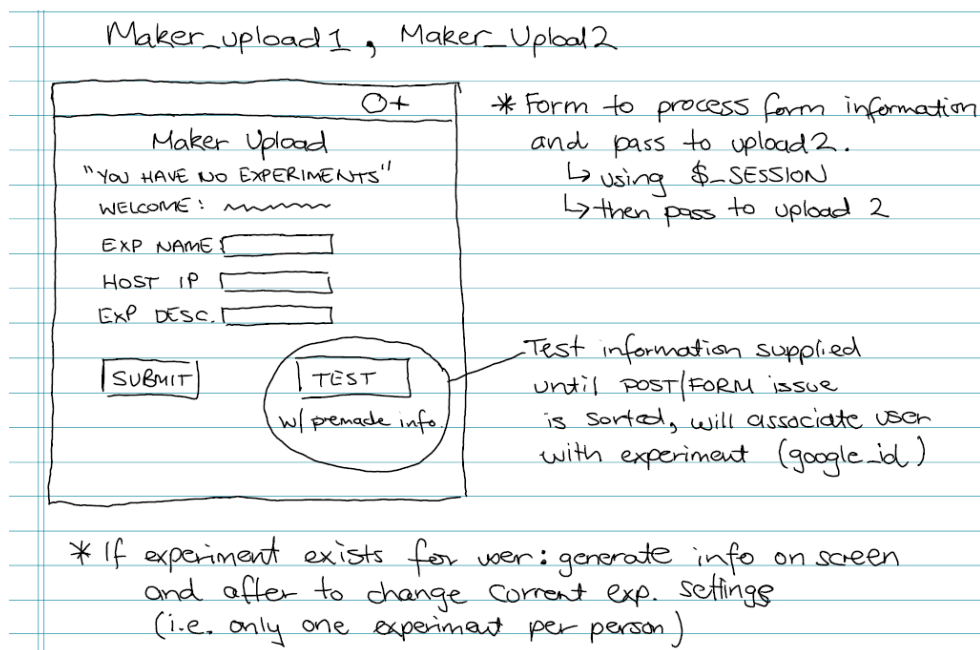 Maker_upload1, Maker_Upload2
O+
Maker Upload
"YOU HAVE NO EXPERIMENTS"
WELCOME:
EXP NAME:
HOST IP
EXP DESC.
SUBMIT
TEST
w/ premade info.
* Form to process form information
and pass to upload2.
↳ using $_SESSION
↳ then pass to upload 2
Test information supplied
until POST/FORM issue
is sorted, will associate user
with experiment (google_id)
* If experiment exists for user: generate info on screen
and offer to change current exp. settings
(i.e. only one experiment per person)